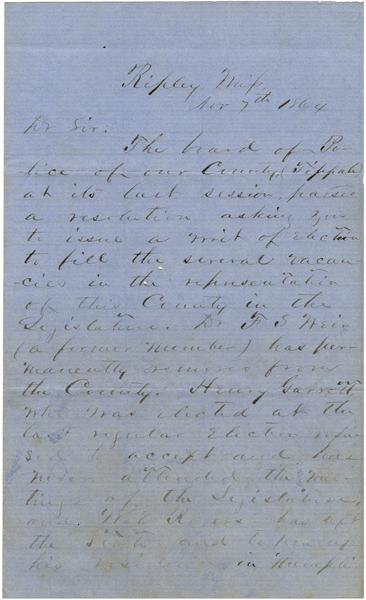 Ripley Miss.
Nov 7th 1864
Dr Sir.
The board of Po-
lice of our County (Tippah)
at its last session, passed
a resolution asking you
to issue a writ of Election
to fill the several vacan-
cies in the representation
of this County in the
Legislature. Dr F S
(a former member) has per-
manently removed from
the County. Henry Garrett
who was elected at the
last regular Election refu-
sed to accept and has
never attended the mee-
tings of the Legislature,
and Rogers has left
the State and taken up
his residence in Memphis